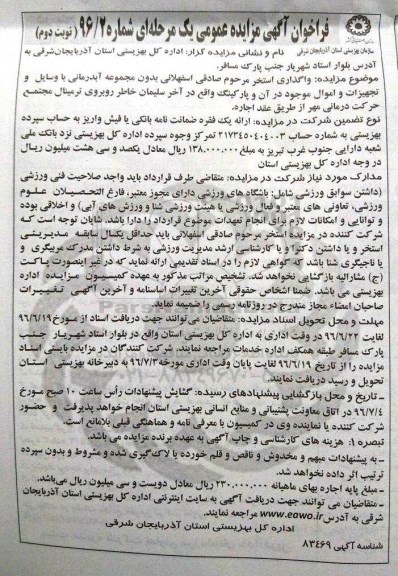 فراخوان آگهی مزایده عمومی یک مرحله‌ای شماره ۹۶/۲ ( نوبت دوم )
سازمان بهزیستی استان آذربایجان شرقی
نام و نشانی مزایده گزار: اداره کل بهزیستی استان آذربایجان‌شرقی به
آدرس بلوار استاد شهریار جنب پارک مسافر.
موضوع مزایده: واگذاری استخر مرحوم صادقی اسفهلانی بدون مجموعه آبدرمانی با وسایل و
تجهیزات و اموال موجود در آن و پارکینگ واقع در آخر سلیمان خاطر روبروی ترمینال مجتمع
حرکت درمانی مهر از طریق عقد اجاره.
نوع تضمین شرکت در مزایده: ارائه یک فقره ضمانت نامه بانکی یا فیش واریز به حساب سپرده
بهزیستی به شماره حساب ۲۱۷۳۴۵۰۴۰۴۰۰۳ تمرکز وجوه سپرده اداره کل بهزیستی نزد بانک ملی
شعبه دارایی جنوب غرب تبریز به مبلغ ۱۳۸.۰۰۰.۰۰۰ ریال معادل یکصد و سی هشت میلیون ریال
در وجه اداره کل بهزیستی استان
مدارک مورد نیاز شرکت در مزایده: متقاضی طرف قرارداد باید واجد صلاحیت فنی ورزشی
(داشتن سوابق ورزشی شامل: باشگاه های ورزشی دارای مجوز معتبر، فارغ التحصیلان علوم
ورزشی، تعاونی های معتبر و فعال ورزشی یا هیئت ورزشی شنا و ورزش های آبی) و اخلاقی بوده
و توانایی و امکانات لازم برای انجام تعهدات موضوع قرارداد را دارا باشد. شایان توجه است که
شرکت کننده در مزایده استخر مرحوم صادقی اسفهلانی باید حداقل یکسال سابقه مدیریتی
استخر و یا داشتن دکترا و یا کارشناسی ارشد مدیریت ورزشی به شرط داشتن مدرک مربیگری و
یا ناجیگری شنا باشد که گواهی لازم را در اسناد تقدیمی ارائه نماید که در غیر اینصورت پاکت
(ج) مشارالیه بازگشایی نخواهد شد. تشخیص مراتب مذکور به عهده کمیسیون مزایده اداره
بهزیستی می باشد. ضمنا اشخاص حقوقی آخرین تغییرات اساسنامه و آخرین آگهی تغییرات
صاحبان امضاء مجاز مندرج در روزنامه رسمی را ضمیمه نماید.
مهلت و محل تحویل اسناد مزایده: متقاضیان می توانند جهت دریافت اسناد از مورخ ۹۶/۶/۱۹
لغایت ۹۶/۶/۲۲ در وقت اداری به اداره کل بهزیستی استان واقع در بلوار استاد شهریار جنب
پارک مسافر طبقه همکف اداره خدمات مراجعه نمایند. شرکت کنندگان در مزایده بایستی اسناد
مزایده را از تاریخ ۹۶/۶/۱۹ لغایت پایان وقت اداری مورخه ۹۶/۷/۳ به دبیرخانه بهزیستی استان
تحویل و رسید دریافت نمایند.
ـ تاریخ و محل بازگشایی پیشنهادهای رسیده: گشایش پیشنهادات رأس ساعت ۱۰ صبح مورخ
۹۶/۷/۴ در اتاق معاونت پشتیبانی و منابع انسانی بهزیستی استان انجام خواهد پذیرفت و حضور
شرکت کننده یا نماینده وی در کمیسیون با معرفی نامه و هماهنگی قبلی بلامانع است.
تبصره ۱: هزینه های کارشناسی و چاپ آگهی به عهده برنده مزایده می باشد.
ـ به پیشنهادات مبهم و مخدوش و ناقص و قلم خورده یا لاک‌گیری شده و مشروط و بدون سپرده
ترتیب اثر داده نخواهد شد.
ـ مبلغ پایه اجاره بهای ماهیانه ۲۳۰.۰۰۰.۰۰۰ ریال معادل دویست و سی میلیون ریال می‌باشد.
ـ متقاضیان می توانند جهت دریافت آگهی به سایت اینترنتی اداره کل بهزیستی استان آذربایجان
شرقی به آدرس www.eawo.ir مراجعه نمایند.
اداره کل بهزیستی استان آذربایجان شرقی
شناسه آگهی ۸۳۴۶۹